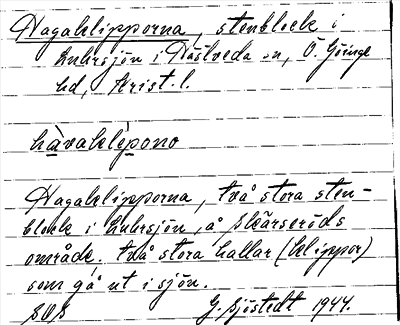 Hagaklipporna, stenblock i
Luhrsjön i Hästveda sn, Ö. Göinge
hd, Krist. l.
hàvaklı̀pono
Hagaklipporna, två stora sten-
block i Luhrsjön, å Skärseröds
område. Två stora hallar (klippor)
som gå ut i sjön.
G. Sjöstedt 1944.